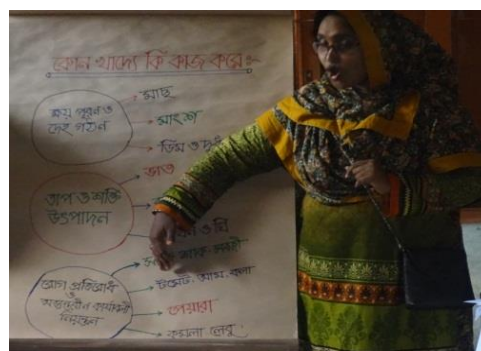 কোন খাদ্যে কি কাজ করে :
ক্ষয় পূরণ ও
দেহ গঠন
মাছ
মাংস
ডিম ও দুধ
তাপ ও শক্তি
উৎপাদন
ভাত
ও ঘি
রোগ প্রতিরোধ
ও
অভ্যন্তরীন কার্যাবলী
নিয়ন্ত্রন
টমেটো, আম, কলা
পেয়ারা
কমলা লেবু